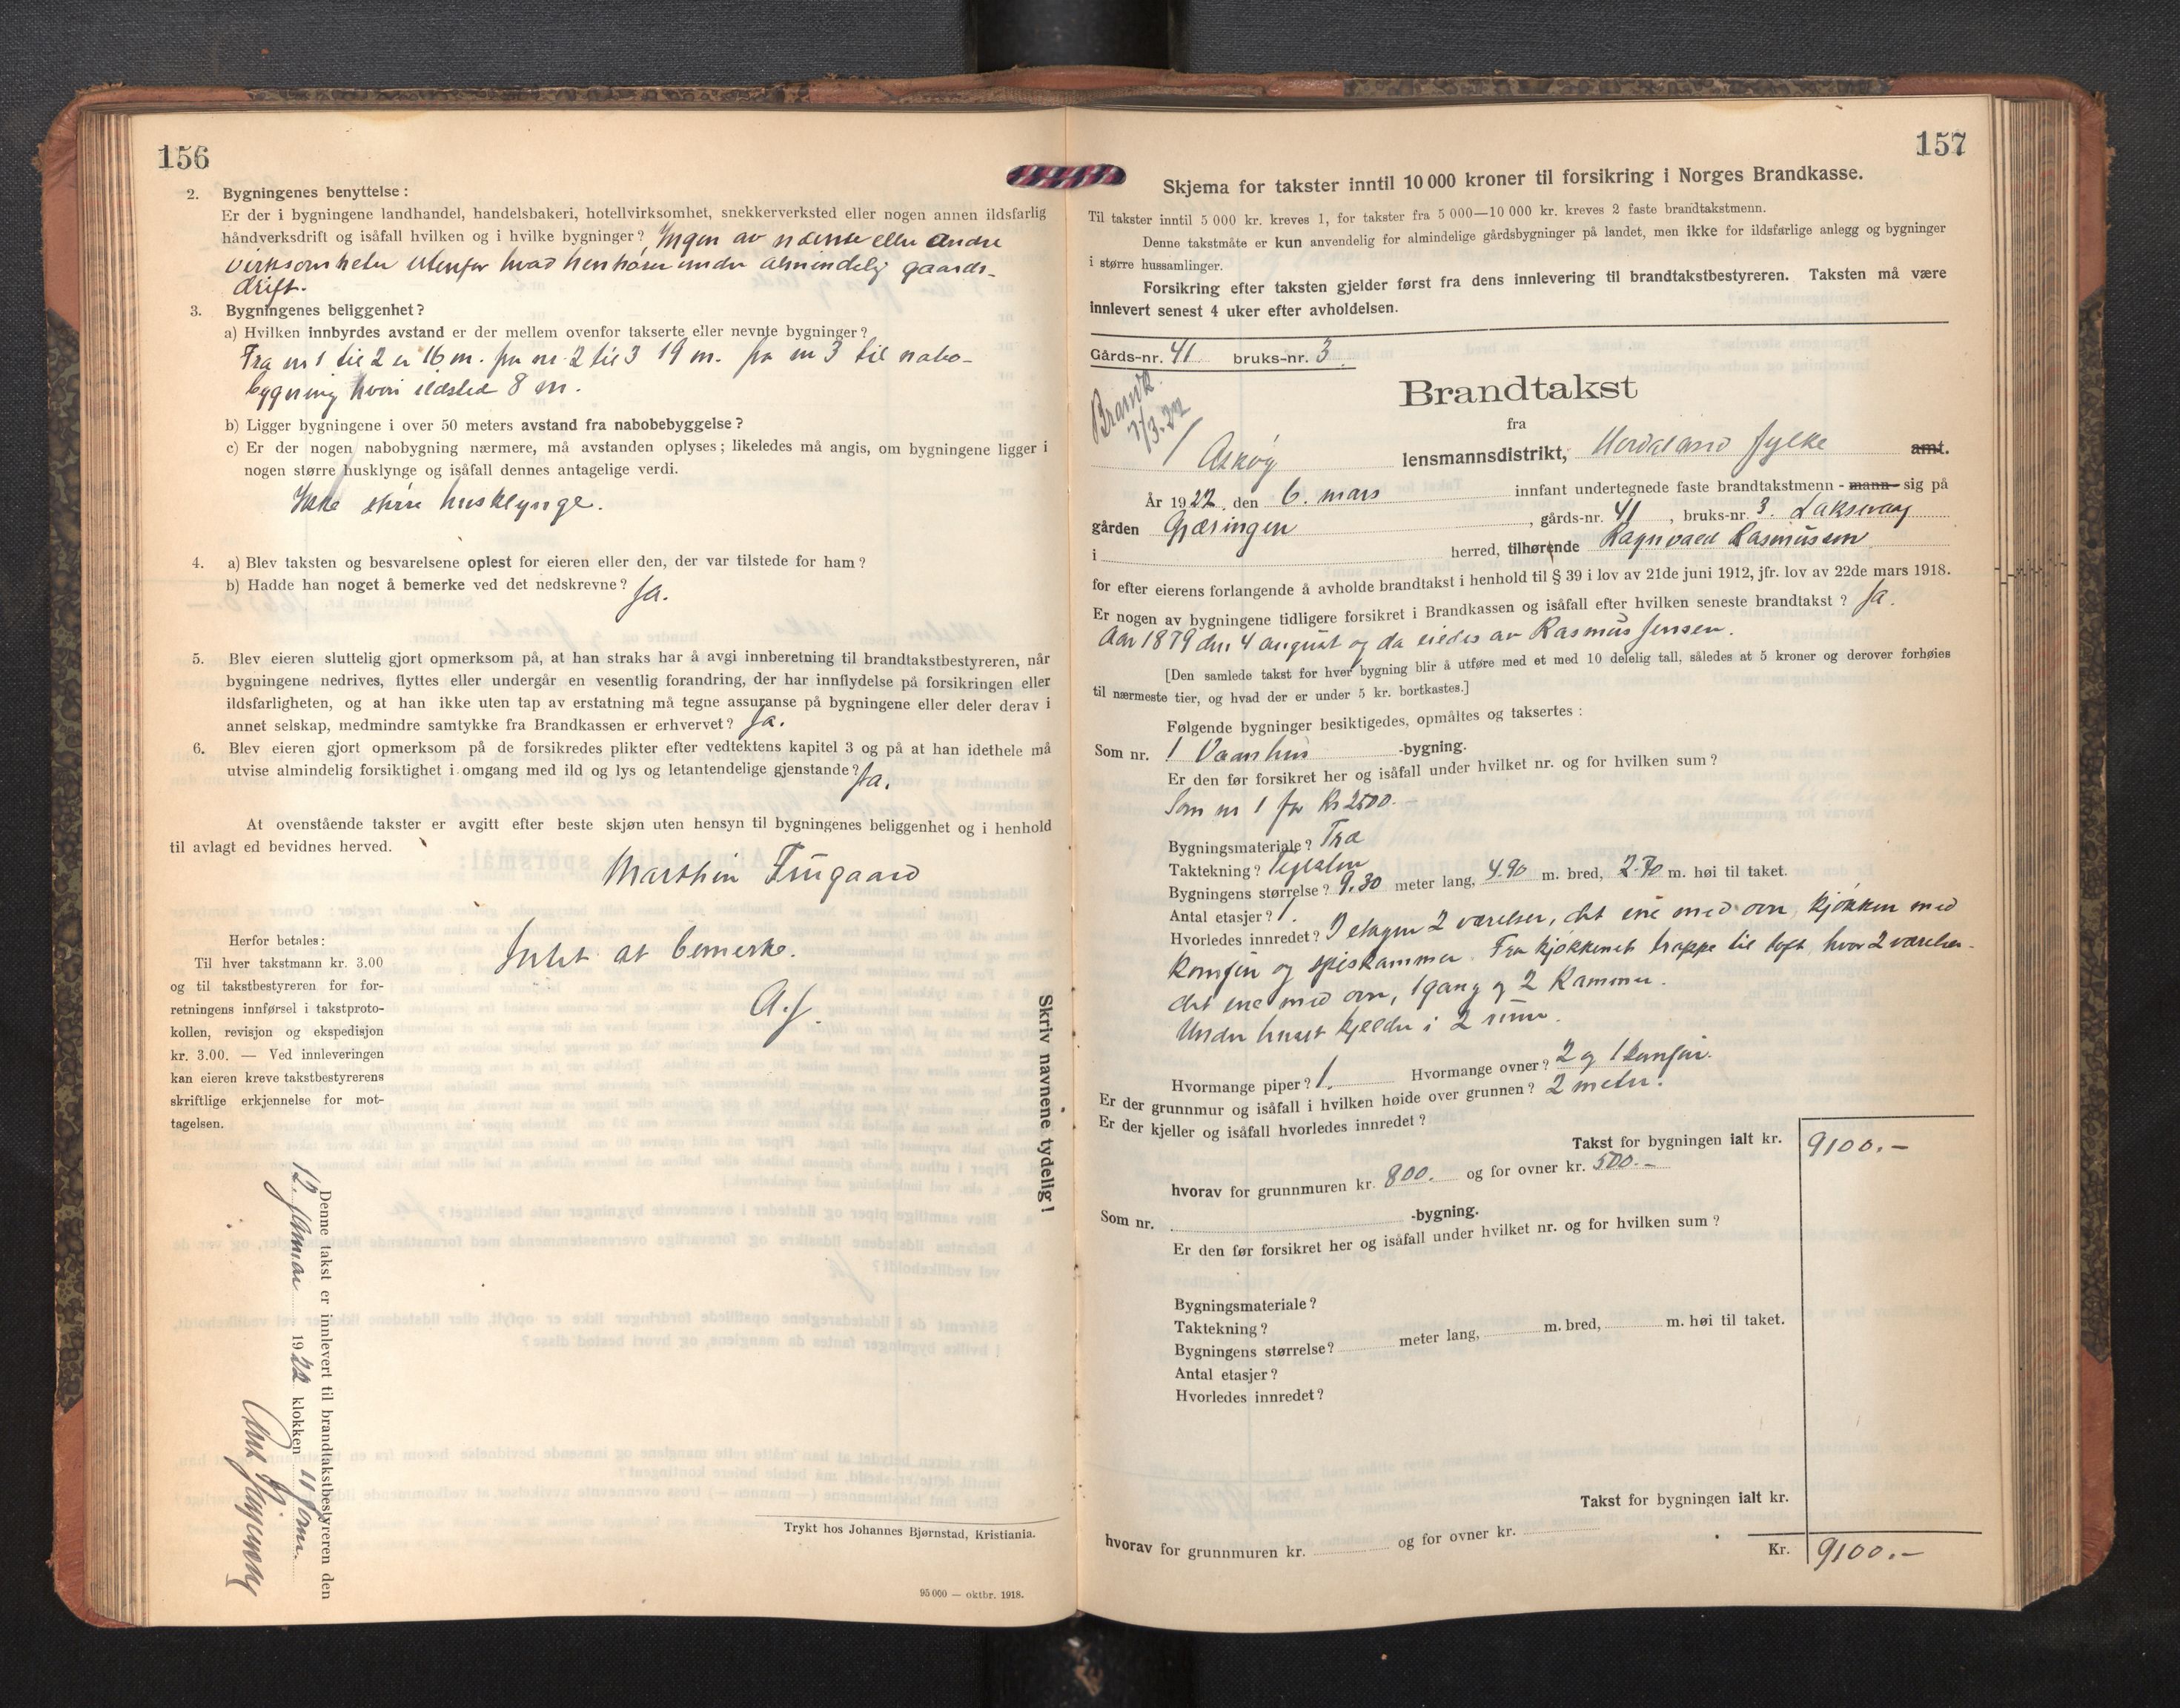 156
2. Bygningenes benyttelse:
Er der i bygningene landhandel, handelsbakeri, hotellvirksomhet, snekkerverksted eller nogen annen ildsfarlig
håndverksdrift og isåfall hvilken og i hvilke bygninger? Ingen av nævnte eller andre
virksomheter utenfor hvad henhører under almindelig gaards-
drift.
3. Bygningenes beliggenhet?
a) Hvilken innbyrdes avstand er der mellem ovenfor takserte eller nevnte bygninger?
Fra nr 1 til 2 er 16 m. fra nr. 2 til 3 19 m. fra nr 3 til nabo-
bygning hvori ildsted 8 m.
b) Ligger bygningene i over 50 meters avstand fra nabobebyggelse?
c) Er der nogen nabobygning nærmere, må avstanden oplyses; likeledes må angis, om bygningene ligger i
nogen større husklynge og isåfall dennes antagelige verdi.
Ikke større husklynge.
4. a) Blev taksten og besvarelsene oplest for eieren eller den, der var tilstede for ham?
b) Hadde han noget å bemerke ved det nedskrevne? Ja.
5. Blev eieren sluttelig gjort opmerksom på, at han straks har å avgi innberetning til brandtakstbestyreren, når
bygningene nedrives, flyttes eller undergår en vesentlig forandring, der har innflydelse på forsikringen eller
ildsfarligheten, og at han ikke uten tap av erstatning må tegne assuranse på bygningene eller deler derav i
annet selskap, medmindre samtykke fra Brandkassen er erhvervet? Ja.
6. Blev eieren gjort opmerksom på de forsikredes plikter efter vedtektens kapitel 3 og på at han idethele må
utvise almindelig forsiktighet i omgang med ild og lys og letantendelige gjenstande? Ja.
At ovenstående takster er avgitt efter beste skjøn uten hensyn til bygningenes beliggenhet og i henhold
til avlagt ed bevidnes herved.
Marthin
Herfor betales:
Til hver takstmann kr. 3.00
og til takstbestyreren for for-
retningens innførsel i takstproto-
kollen, revisjon og ekspedisjon
kr. 3.00. — Ved innleveringen
kan eieren kreve takstbestyrerens
skriftlige erkjennelse for mot-
tagelsen.
Intet at bemerke.
Skriv navnene tydelig!
Denne takst er innlevert til brandtakstbestyreren den
12. Januar 1922 klokken 11 form.
Trykt hos Johannes Bjørnstad, Kristiania.
95 000 — oktbr. 1918.
157
Skjema for takster inntil 10 000 kroner til forsikring i Norges Brandkasse.
Til takster inntil 5 000 kr. kreves 1, for takster fra 5 000—10 000 kr. kreves 2 faste brandtakstmenn.
Denne takstmåte er kun anvendelig for almindelige gårdsbygninger på landet, men ikke for ildsfarlige anlegg og bygninger
i større hussamlinger.
Forsikring efter taksten gjelder først fra dens innlevering til brandtakstbestyreren. Taksten må være
innlevert senest 4 uker efter avholdelsen.
Gårds-nr. 41 bruks-nr. 3
Brandtakst
fra
Askøy lensmannsdistrikt, Hordaland fylke amt.
År 1922, den 6. mars innfant undertegnede faste brandtakstmenn - mann- sig på
gården Gjæringen, gårds-nr. 41, bruks-nr. 3. Laksevaag
i herred, tilhørende Ragnvald Rasmussen
for efter eierens forlangende å avholde brandtakst i henhold til § 39 i lov av 21de juni 1912, jfr. lov av 22de mars 1918.
Er nogen av bygningene tidligere forsikret i Brandkassen og isåfall efter hvilken seneste brandtakst? Ja.
Aar 1879 den 4 august og da eiedes av Rasmus Jensen.
[Den samlede takst for hver bygning blir å utføre med et med 10 delelig tall, således at 5 kroner og derover forhøies
til nærmeste tier, og hvad der er under 5 kr. bortkastes.]
Følgende bygninger besiktigedes, opmåltes og taksertes:
Som nr. 1 Vaanhus -bygning.
Er den før forsikret her og isåfall under hvilket nr. og for hvilken sum?
Som nr 1 for Kr 2500.-
Bygningsmateriale? Træ
Taktekning? Teglsten
Bygningens størrelse? 9.30 meter lang, 4.90 m. bred, 2.70 m. høi til taket.
Antal etasjer? 1.
Hvorledes innredet? I etagen 2 værelser, det ene med ovn, kjøkken med
komfur og spiskammer. Fra kjøkkenet trappe til loft, hvor 2 værelser
det ene med ovn, 1 gang og 2 Kammer.
Under huset kjelder i 2 rum.
Hvormange piper? 1. Hvormange ovner? 2 og 1 komfur.
Er der grunnmur og isåfall i hvilken høide over grunnen? 2 meter.
Er der kjeller og isåfall hvorledes innredet?
Takst for bygningen ialt kr. 9100.-
hvorav for grunnmuren kr. 800.- og for ovner kr. 500.-
Som nr. -bygning.
Er den før forsikret her og isåfall under hvilket nr. og for hvilken sum?
Bygningsmateriale?
Taktekning?
Bygningens størrelse? meter lang, m. bred, m. høi til taket.
Antal etasjer?
Hvorledes innredet?
Takst for bygningen ialt kr.
hvorav for grunnmuren kr. og for ovner kr.
Kr. 9100.-